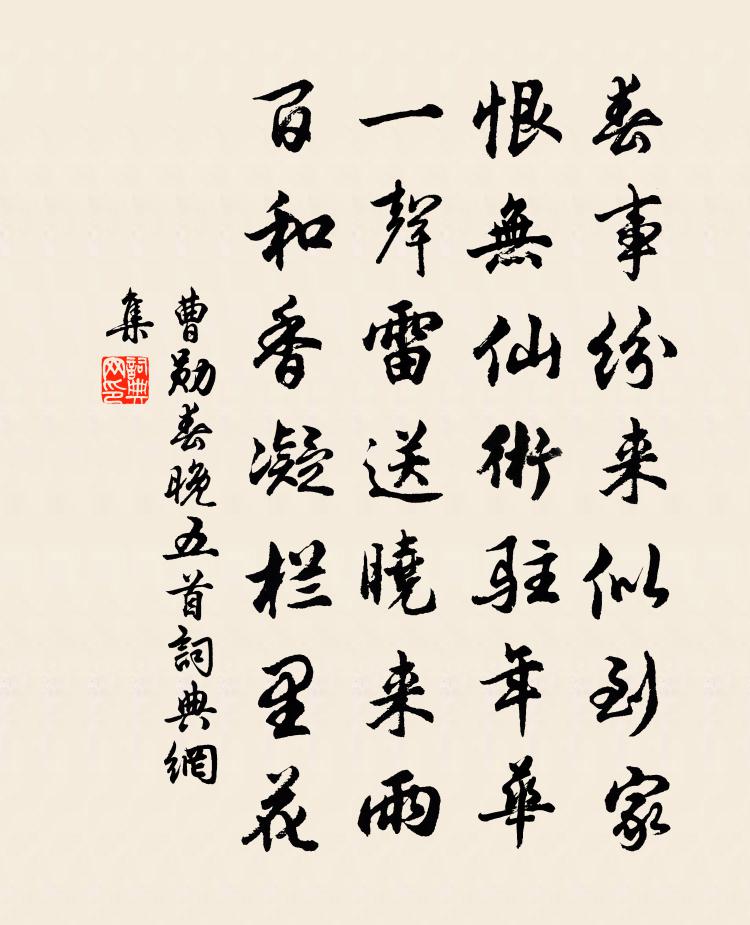 春事纷来似到家
恨無仙術駐年華
一聲雷送曉来雨
百和香凝栏里花
曹勛春晚五首詞典網
集
詞典
网印